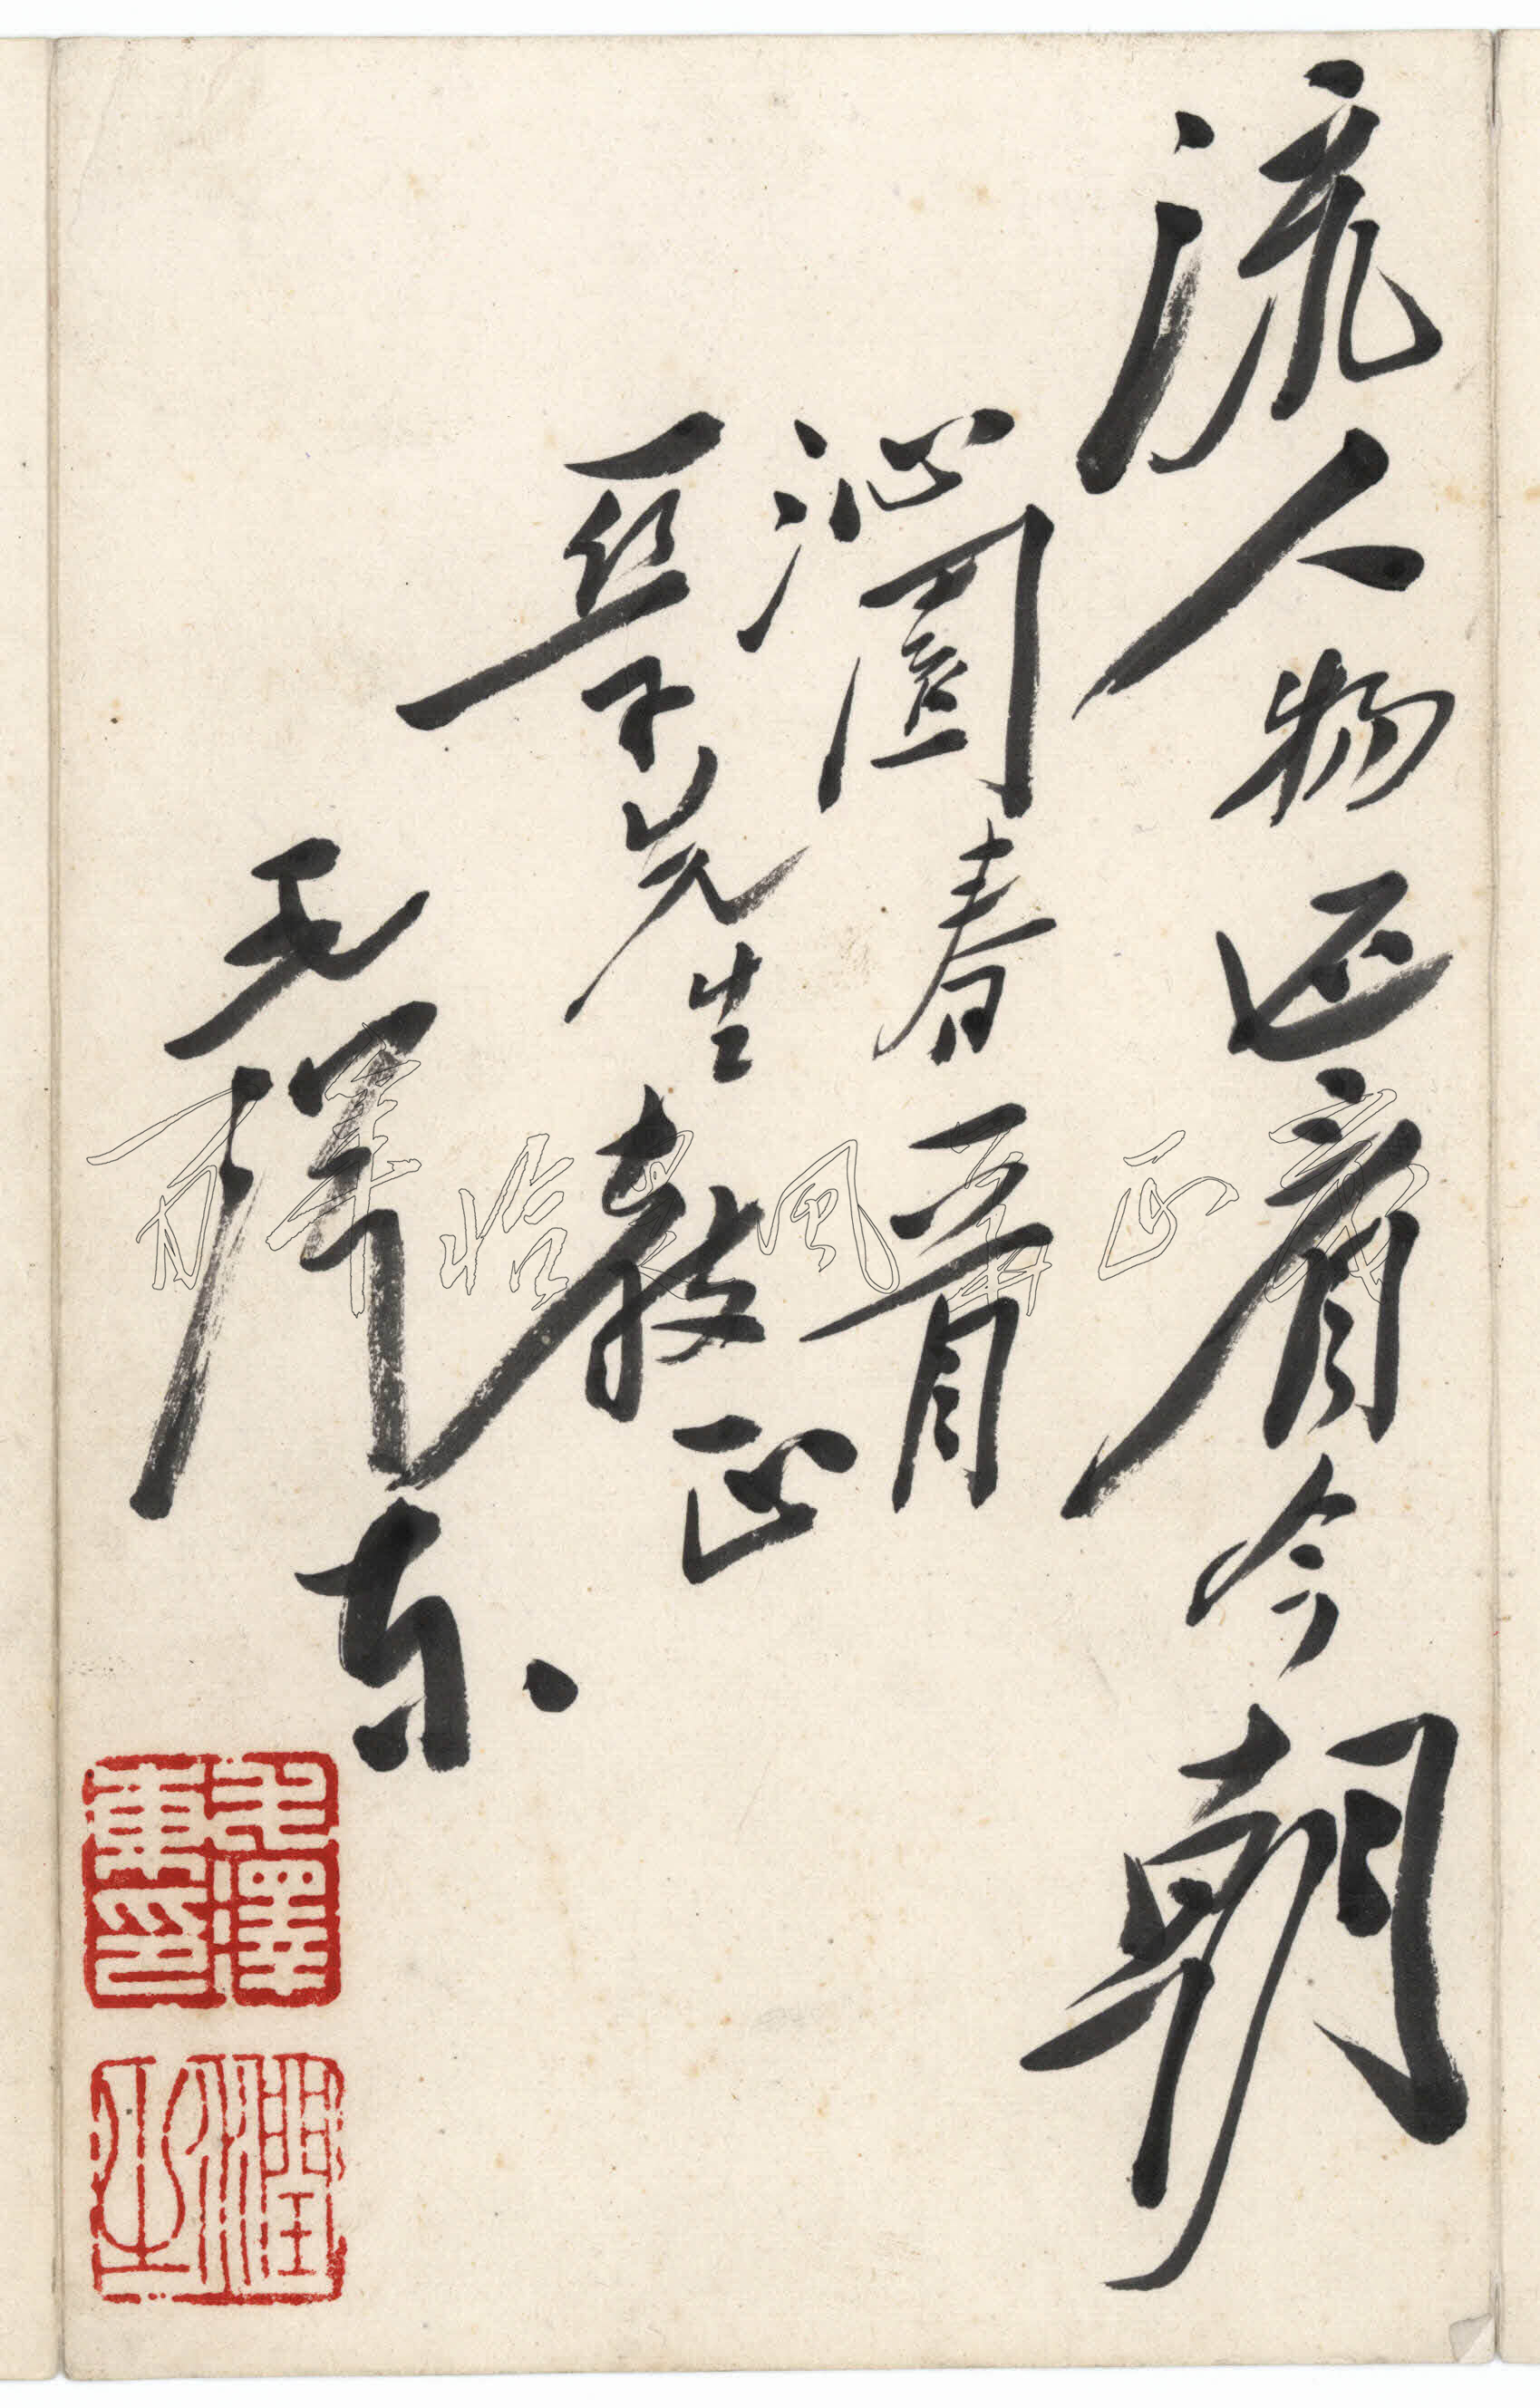 流人物还看今朝
沁園春一首
亞子先生教正
毛澤东
毛澤東印
潤之